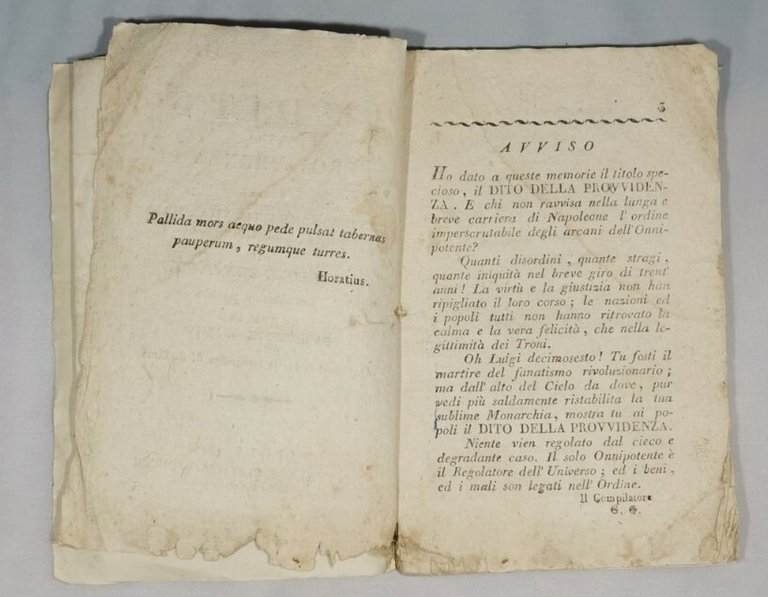 Pallida mors aequo pede pulsat tabernas
pauperum, regumque turres.
Horatius.
3
AVVISO
Ho dato a queste memorie il titolo spe-
cioso, il DITO DELLA PROVVIDEN-
ZA. E chi non ravvisa nella lunga e
breve carriera di Napoleone l'ordine
imperscrutabile degli arcani dell'Onni-
potente?
Quanti disordini, quante stragi,
quante iniquità nel breve giro di trent'
anni! La virtù e la giustizia non han
ripigliato il loro corso; le nazioni ed
i popoli tutti non hanno ritrovato la
calma e la vera felicità, che nella le-
gittimità dei Troni.
Oh Luigi decimosesto! Tu fosti il
martire del fanatismo rivoluzionario;
ma dall'alto del Cielo da dove, pur
vedi più saldamente ristabilita la tua
sublime Monarchia, mostra tu ai po-
poli il DITO DELLA PROVVIDENZA.
Niente vien regolato dal cieco e
degradante caso. Il solo Onnipotente è
il Regolatore dell'Universo; ed i beni,
ed i mali son legati nell'Ordine.
Il Compilatore
G. G.